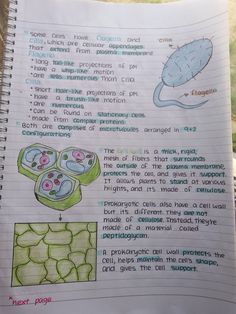 Some cells have flagella and
cilia, which are cellular appendages
that extend from plasma membrane
Flagella:
• long tail-like projections of PM
• have a whip-like motion
• are less numerous than cilia
Cilia:
• short hair-like projections of PM
• have a brush-like motion
• are numerous
• can be found on stationary cells
• made from complex proteins
Both are composed of microtubules arranged in 9+2
configurations
cilia
flagella
The cell wall is a thick, rigid,
mesh of fibers that surrounds
the outside of the plasma membrane,
protects the cell, and gives it support.
It allows plants to stand at various
heights, and its made of cellulose
Prokaryotic cells also have a cell wall
but its different. They are not
made of cellulose. Instead, they're
made of a material called
peptidoglycan.
A prokaryotic cell wall protects the
cell, helps maintain the cell's shape,
and gives the cell support.
*next page